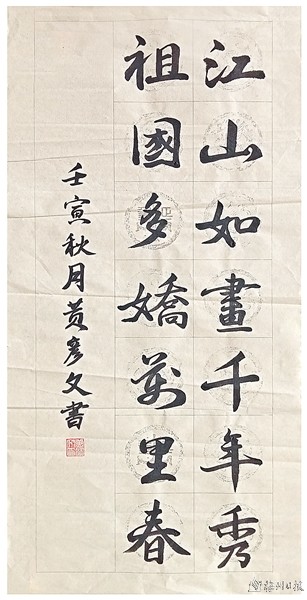 江山如畫千年秀
祖國多嬌萬里春
壬寅秋月黃彥文書